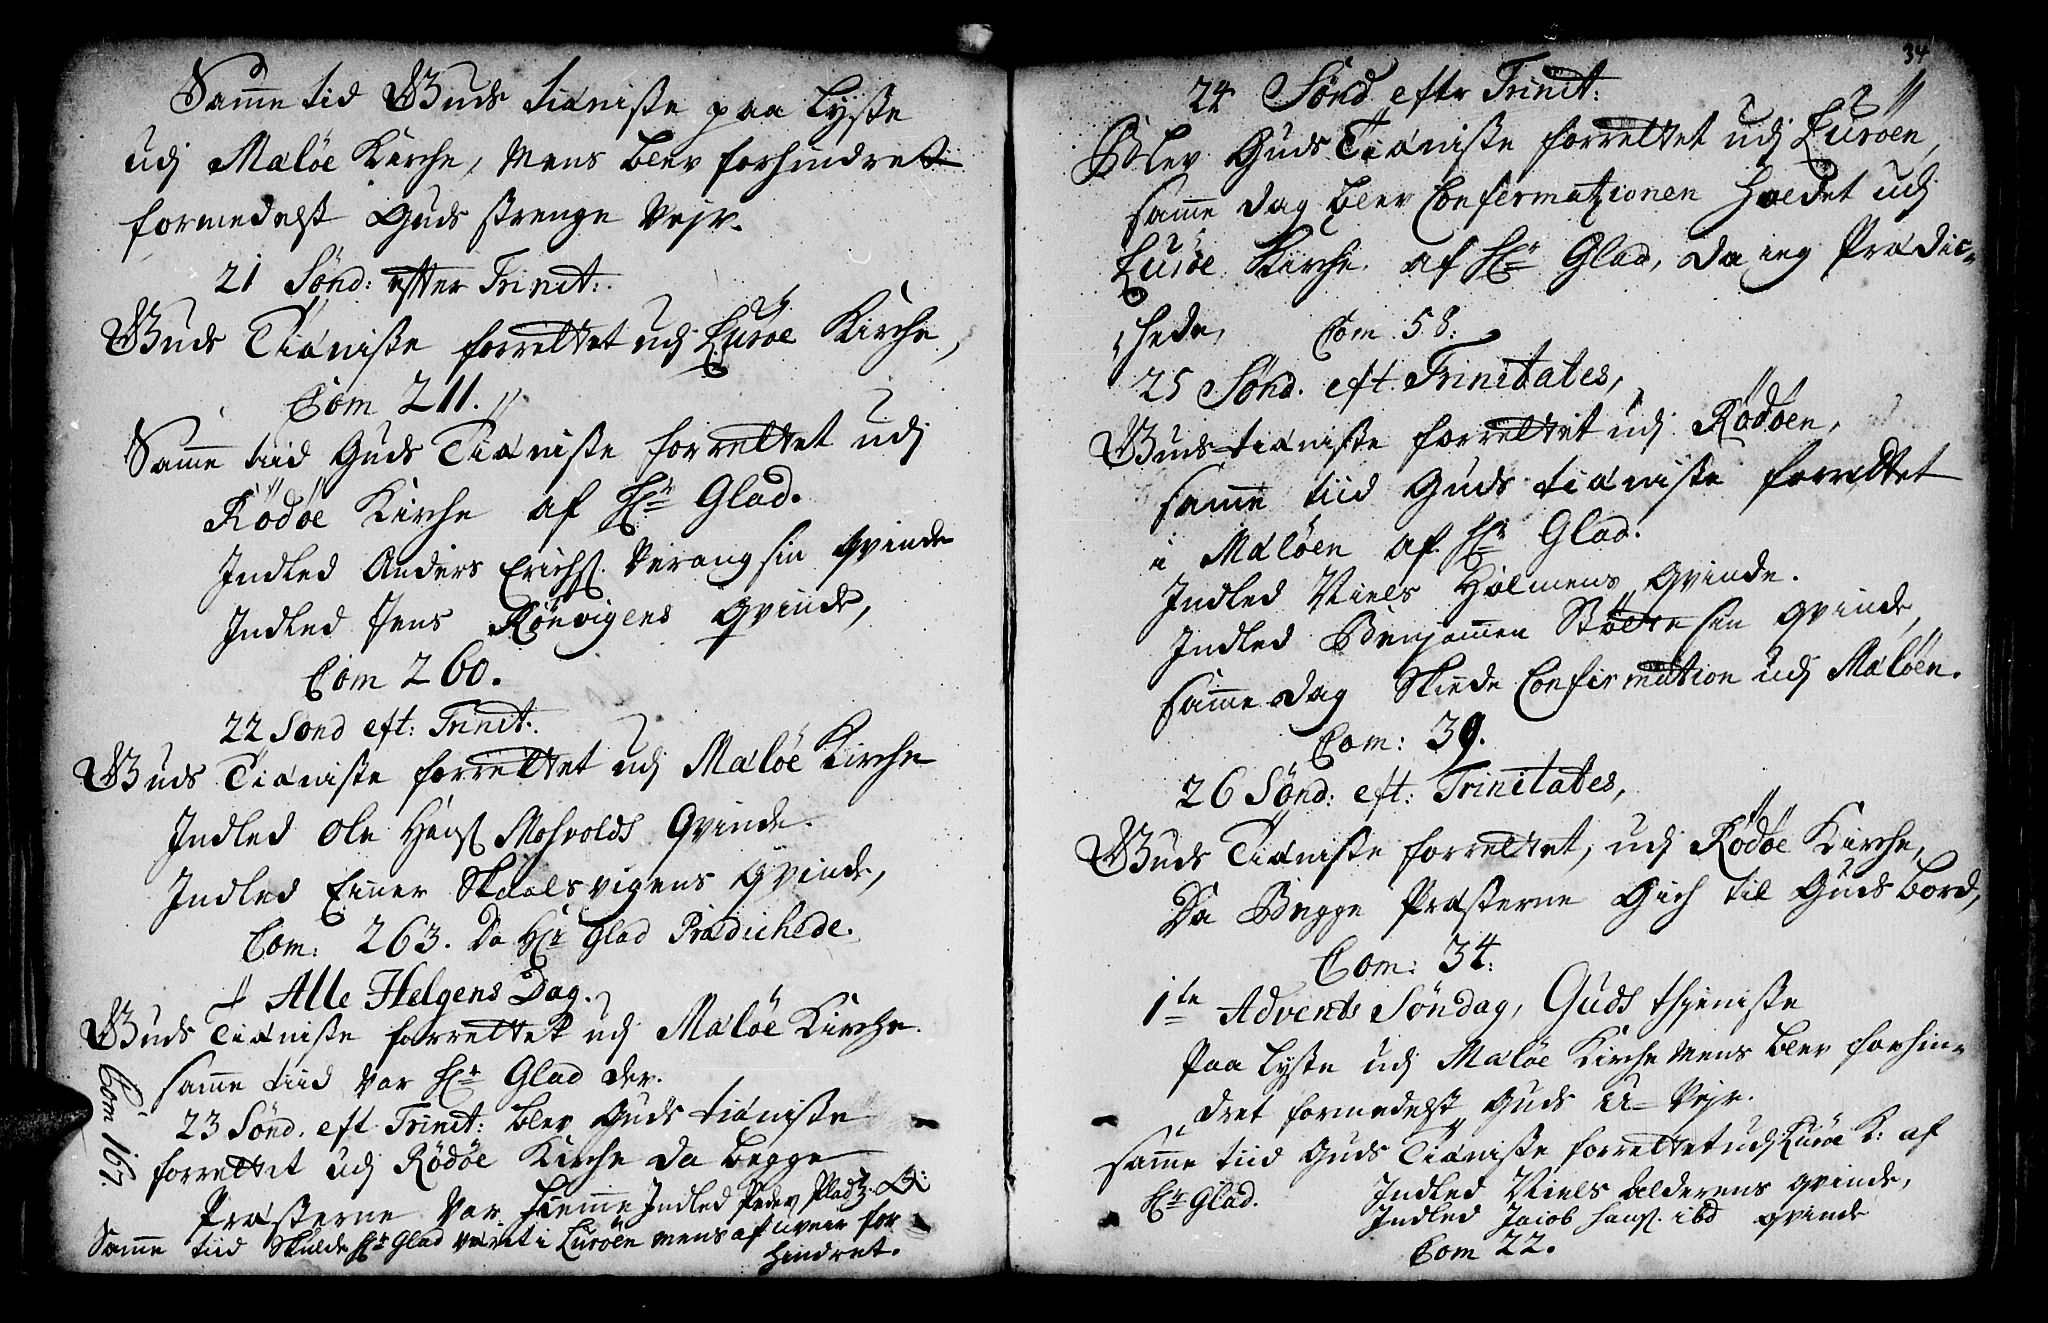 Samme tid Guds tiæniste paa lyste
udj Mæløe Kirche, Mens blev forhindret
formedelst Guds strenge Vejr.
21 Sönd: efter Trinit:
Guds Tiæniste forrettet udj Lurøe Kirche,
Com 211.
Samme tiid Guds Tiæniste forrettet udj
Rödöe Kirche af Hr Glad.
Indled Anders Erichs. Værang sin qvinde
Indled Jens Rönvigens qvinde,
Com 260.
22 Sönd eft: Trinit:
Guds Tiæniste forrettet udj Mæløe Kirche
Indled Ole Hans Mosvolds Qvinde.
Indled Einer Skaalsvigens qvinde,
Com: 263. Da Hr Glad Prædichede.
+ Alle Helgens Dag.
Guds Tiæniste forrettet udj Mæløe Kirche.
samme tiid var Hr Glad der.
Com 167.
23 Sönd. eft Trinit: blev Guds tiæniste
forrettet udj Rödöe Kirche da begge
Præsterne var hiemme Indled Peder Pladtz. Q:
Samme tiid skulde Hr Glad været i Lurøen mens af uveir for
hindret.
34
24 Sönd efter Trinit:
Blev Guds Tiæniste forrettet udj Lurøen,
samme dag blev Confermationen holdet udj
Lurøe Kirche af Hr Glad, da ieg Prædic-
hede, Com 58:
25 Sönd. eft Trinitates,
Guds tiæniste forrettet udj Rödöen,
samme tiid Guds tiæniste forrettet
i Mæløen af Hr Glad.
Indled Niels Holmens Qvinde.
Indled Benjamen sin qvinde,
samme dag Skiede Confirmation udj Mæløen.
Com: 39.
26 Sönd: eft: Trinitates,
Guds Tiæniste forrettet, udj Rödöe Kirche,
Da Begge Præsterne Gich til Guds bord,
Com: 34:
1te Advents Söndag, Guds thieniste
Paa lyste udj Mæløe Kirche mens blev forhin-
dret formedelst Guds U-Vejr.
samme tiid Guds Tiæniste forrettet udj Lurøe K: af
Hr Glad. Indled Niels Alderens qvinde,
Indled Jacob Hans. ibd qvinde
Com 22.